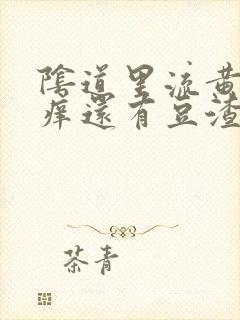 陰道里流黃
痒還有豆渣
茶青